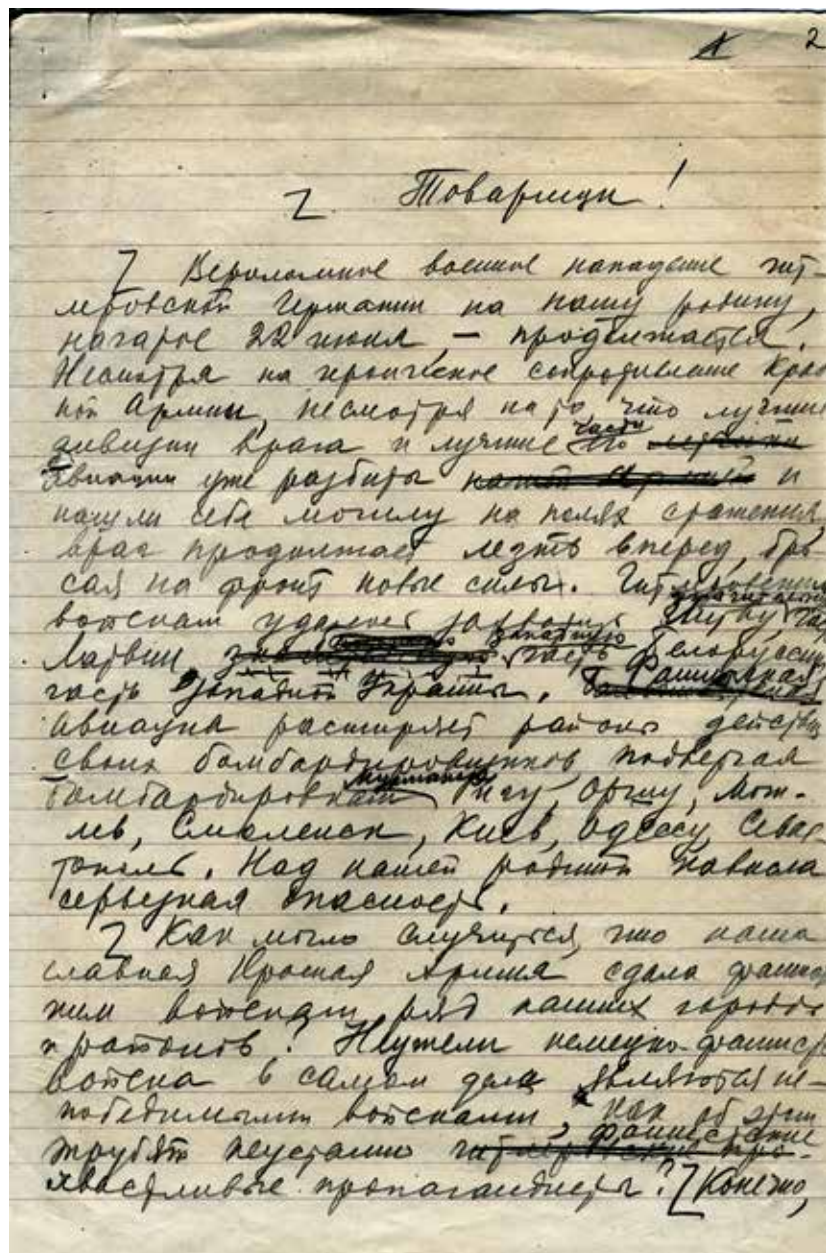 2
Товарищи!
Вероломное военное нападение гит-
леровской Германии на нашу родину,
начатое 22 июня, – продолжается.
Несмотря на героическое сопротивление Крас
ной Армии, несмотря на то, что лучшие
дивизии врага и лучшие части его
авиации уже разбиты и
нашли себе могилу на полях сражения,
враг продолжает лезть вперед, бро-
сая на фронт новые силы. Гитлеровским
войскам удалось захватить Литву,
Латвии, западную часть Белоруссии
часть Западной Украины. Фашистская
авиация расширяет районы действия
своих бомбардировщиков, подвергая
бомбардировкам Мурманск, Оршу, Моги-
лев, Смоленск, Киев, Одессу, Севас
тополь. Над нашей родиной нависла
серьезная опасность.
Как могло случиться, что наша
славная Красная Армия сдала фашист
ким войскам ряд наших городов
и районов? Неужели немецко-фашистс
войска в самом деле являются не-
победимыми войсками, как об этом
трубят неустанно фашистские
хвастливые пропагандисты? Конечно,